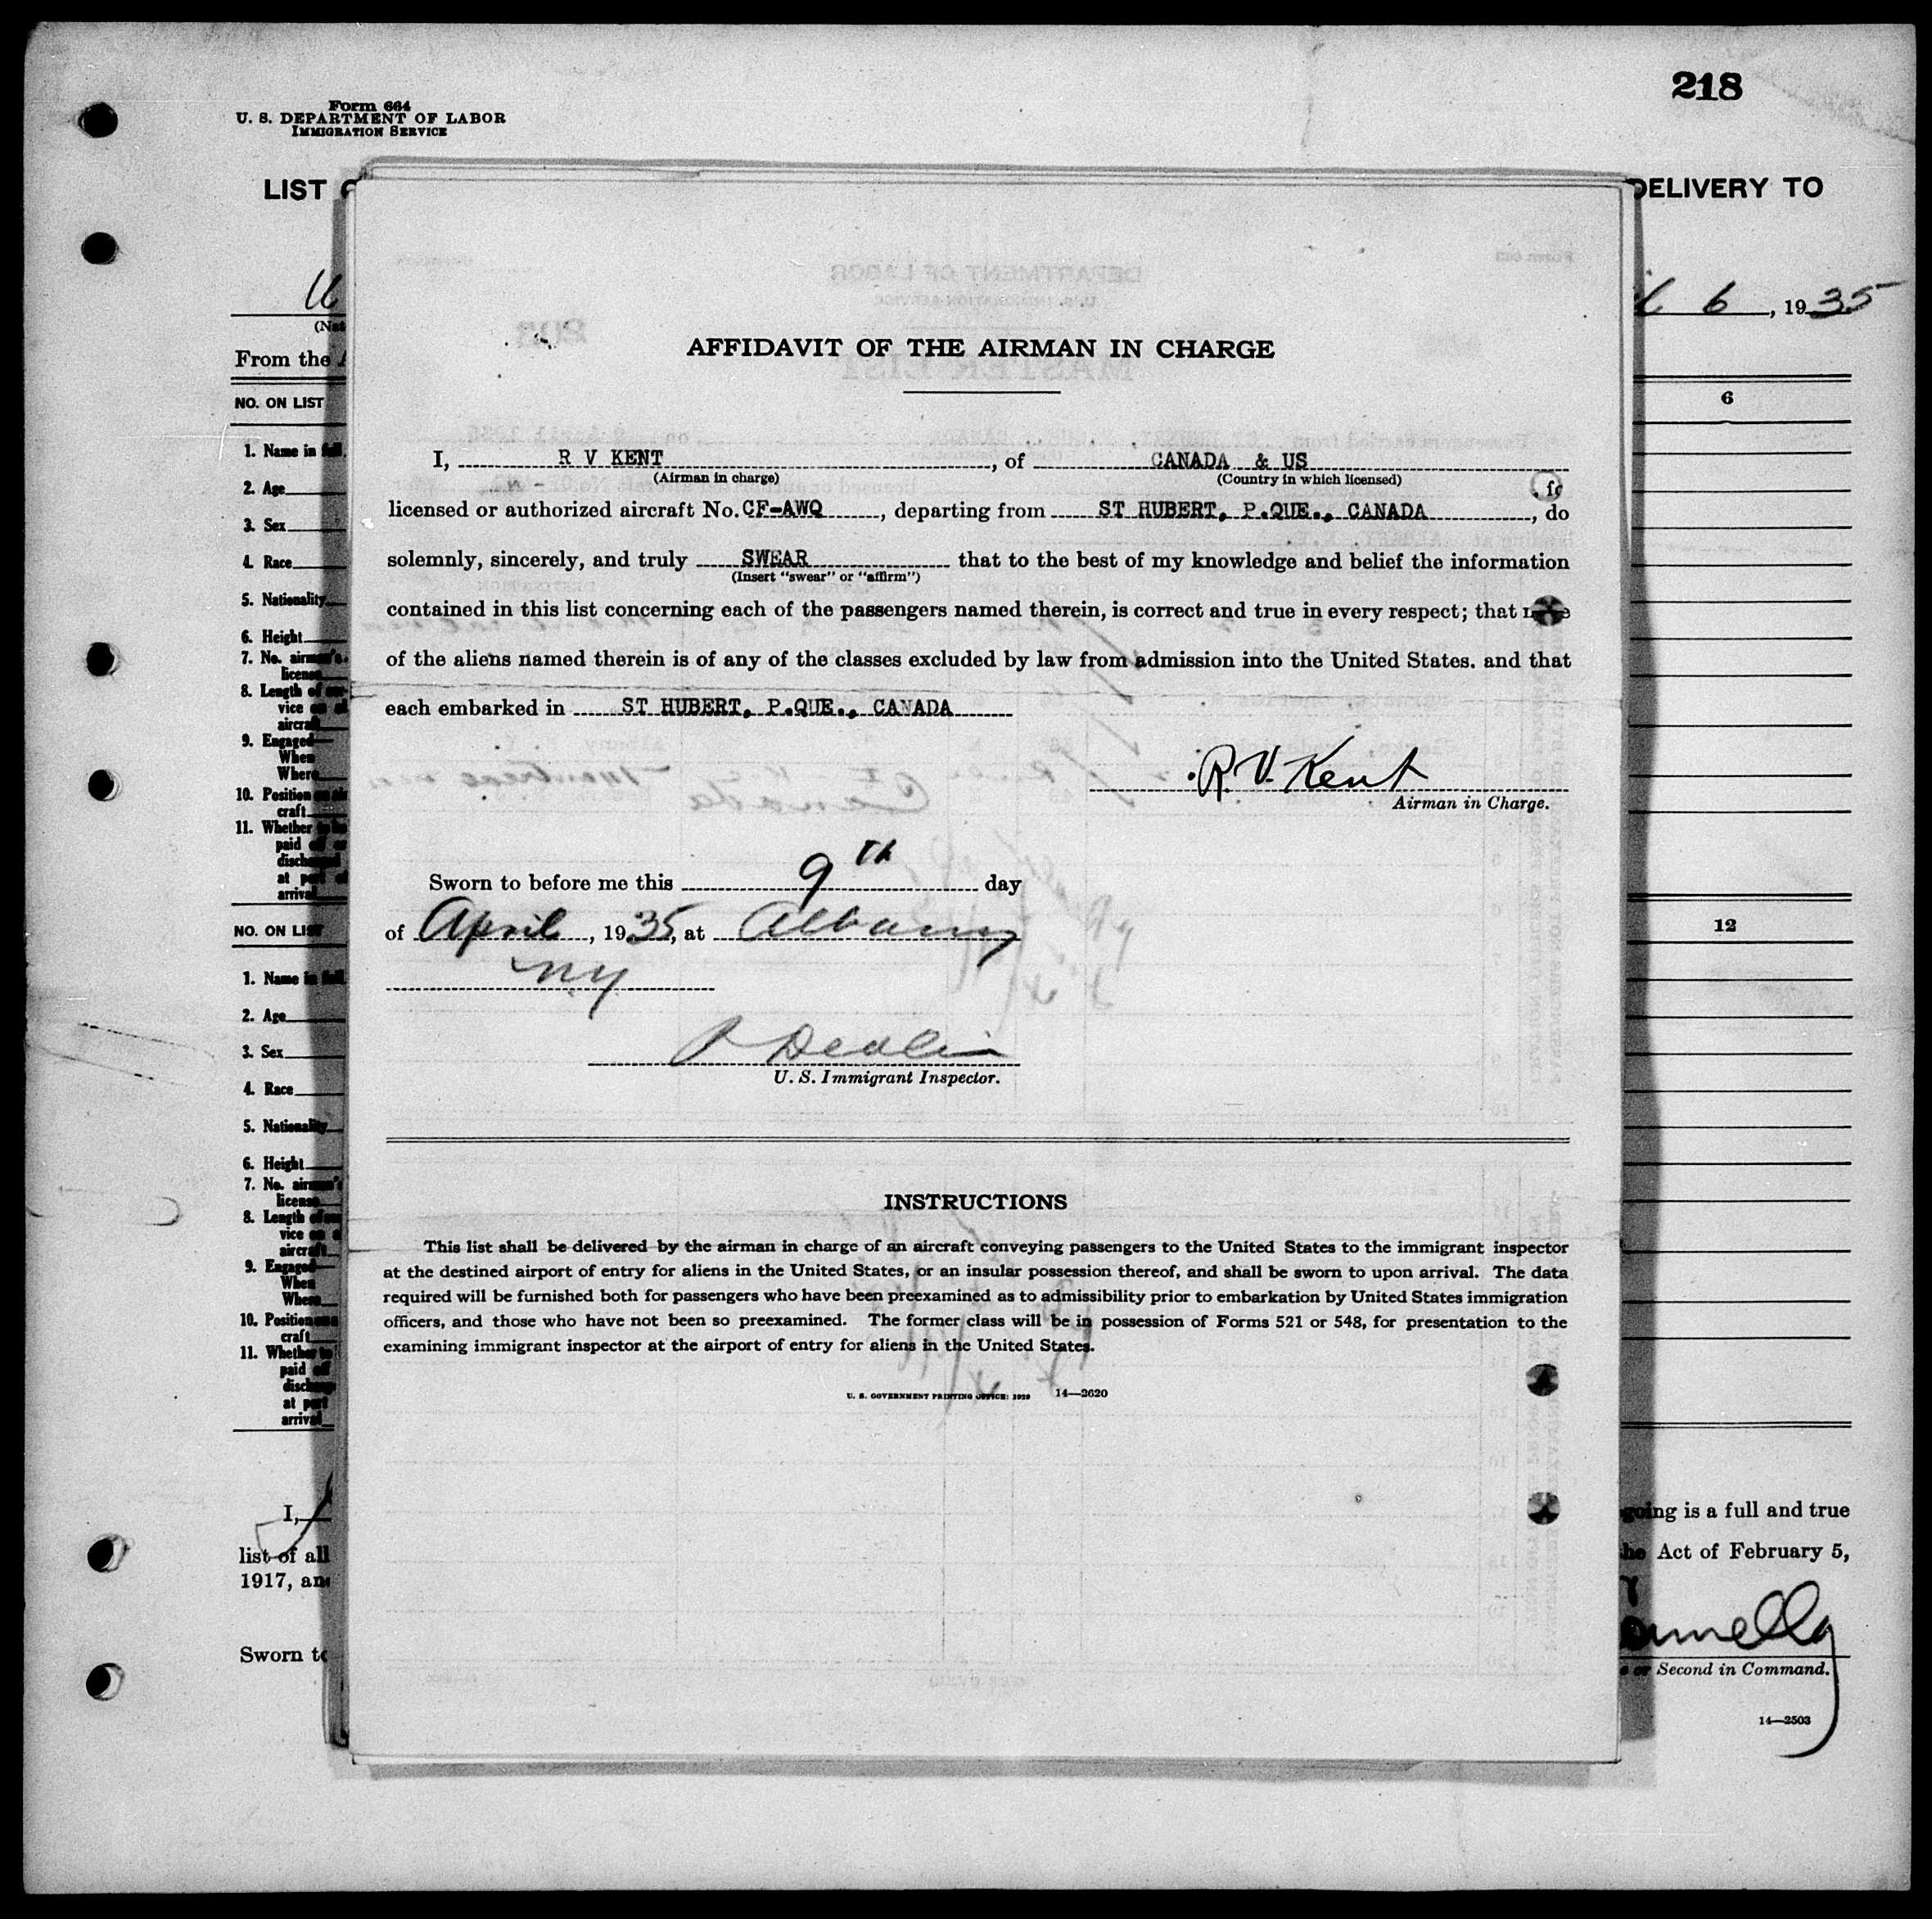 218
Form 664
U. S. DEPARTMENT OF LABOR
IMMIGRATION SERVICE
LIST
DELIVERY TO
6, 1935
From the
NO. ON LIST
6
1. Name in full
2. Age
3. Sex
4. Race
5. Nationality
6. Height
7. No. airman's
license
8. Length of ser-
vice on
aircraft
9. Engaged
When
Where
10. Position on air
craft
11. Whether to be
paid off or
discharged
at port of
arrival
NO. ON LIST
12
1. Name in full
2. Age
3. Sex
4. Race
5. Nationality
6. Height
7. No. airman's
license
8. Length of ser-
vice on a
aircraft
9. Engaged
When
Where
10. Position
craft
11. Whether to
paid off
discharge
at port
arrival
I,
going is a full and true
list of all
the Act of February 5,
1917, and
Sworn to
or Second in Command.
14—2503
AFFIDAVIT OF THE AIRMAN IN CHARGE
I, R V KENT, of CANADA & US
(Airman in charge) (Country in which licensed)
licensed or authorized aircraft No. CF-AWQ, departing from ST HUBERT, P.QUE., CANADA, do
solemnly, sincerely, and truly SWEAR that to the best of my knowledge and belief the information
(Insert "swear" or "affirm")
contained in this list concerning each of the passengers named therein, is correct and true in every respect; that none
of the aliens named therein is of any of the classes excluded by law from admission into the United States. and that
each embarked in ST HUBERT, P.QUE., CANADA
R. V. Kent
Airman in Charge.
Sworn to before me this 9th day
of April, 1935, at Albany
N.Y.
Devlin
U. S. Immigrant Inspector.
INSTRUCTIONS
This list shall be delivered by the airman in charge of an aircraft conveying passengers to the United States to the immigrant inspector
at the destined airport of entry for aliens in the United States, or an insular possession thereof, and shall be sworn to upon arrival. The data
required will be furnished both for passengers who have been preexamined as to admissibility prior to embarkation by United States immigration
officers, and those who have not been so preexamined. The former class will be in possession of Forms 521 or 548, for presentation to the
examining immigrant inspector at the airport of entry for aliens in the United States.
U. S. GOVERNMENT PRINTING OFFICE: 1929 14—2620